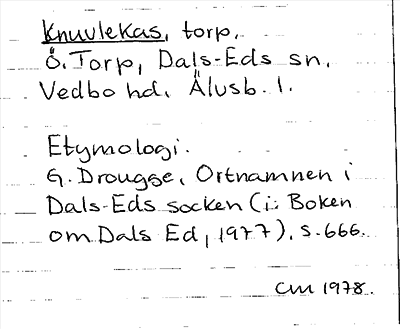 Knuvlekas, torp,
Ö. Torp, Dals-Eds sn,
Vedbo hd. Älvsb. l.
Etymologi.
G. Drougge, Ortnamnen i
Dals-Eds socken (i: Boken
om Dals Ed, 1977), s. 666.
CM 1978.